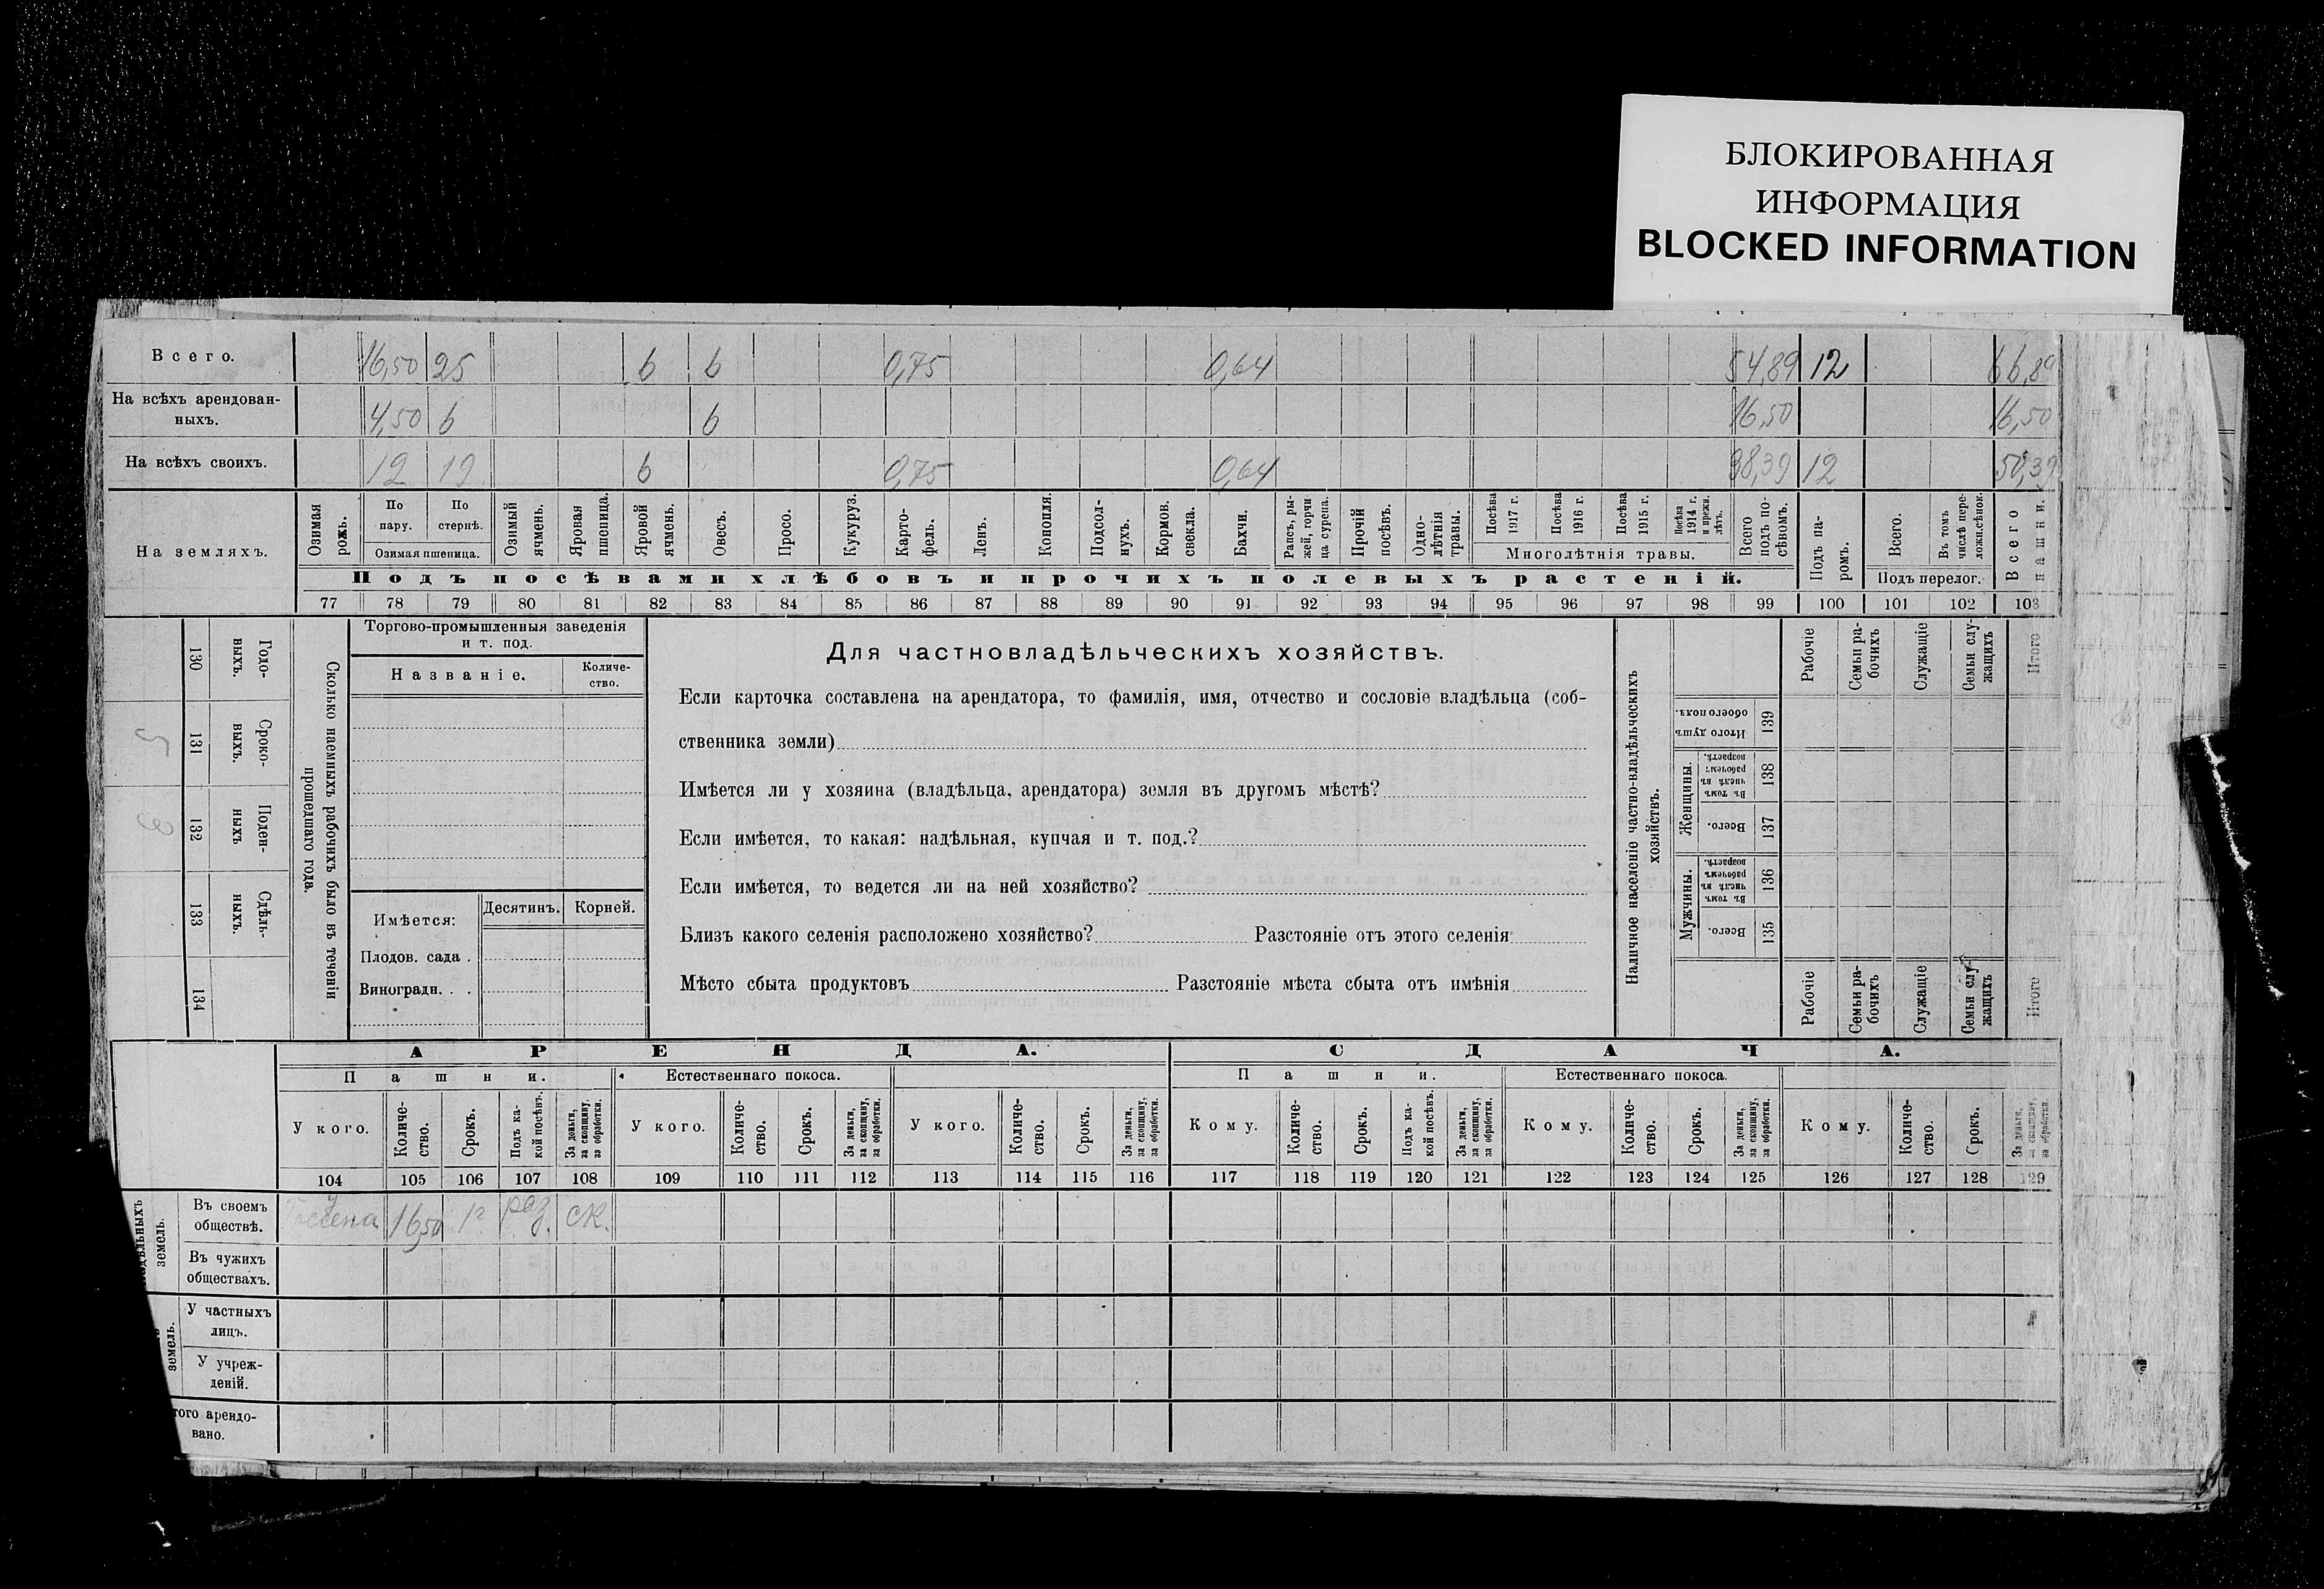 БЛОКИРОВАННАЯ
ИНФОРМАЦИЯ
BLOCKED INFORMATION
Всего. 16,50 25 6 6 0,75 0,64 54,89 12 66,89
На всѣхъ арендован-
ныхъ. 4,50 6 6 16,50 16,50
На всѣхъ своихъ. 12 19 6 0,75 0,64 38,39 12 50,39
На земляхъ.
Озимая рожь.
По пару.
По стернѣ.
Озимая пшеница.
Озимый ячмень.
Яровая пшеница.
Яровой ячмень.
Овесъ.
Просо.
Кукуруз.
Карто-
фель.
Ленъ.
Конопля.
Подсол-
нухъ.
Кормов. свекла.
Бахчи.
Рапсъ, ры-
жей, горчи
ца сурепа.
Прочій посѣвъ.
Одно-
лѣтнія
травы.
Посѣва 1917 г.
Посѣва 1916 г.
Посѣва 1915 г.
Посѣва 1914 г. и прежн. лѣтъ.
Многолѣтнія травы.
Всего подъ по-
сѣвомъ.
Подъ па-
ромъ.
Всего.
Въ томъ числѣ пере-
ложн.сѣнок.
Подъ перелог.
Всего пашни.
Подъ посѣвами хлѣбовъ и прочихъ полевыхъ растеній.
77 78 79 80 81 82 83 84 85 86 87 88 89 90 91 92 93 94 95 96 97 98 99 100 101 102 103
Сколько наемныхъ рабочихъ было въ теченіи
прошедшаго года.
Годо-
выхъ.
130
Сроко-
выхъ.
131
5
Поден-
ныхъ
132
3
Сдѣль-
ныхъ.
133
134
Торгово-промышленныя заведенія
и т. под.
Названіе.
Количе-
ство.
Имѣется:
Десятинъ. Корней.
Плодов. сада .
Виноградн. . .
Для частновладѣльческихъ хозяйствъ.
Если карточка составлена на арендатора, то фамилія, имя, отчество и сословіе владѣльца (соб-
ственника земли)
Имѣется ли у хозяина (владѣльца, арендатора) земля въ другомъ мѣстѣ?
Если имѣется, то какая: надѣльная, купчая и т. под.?
Если имѣется, то ведется ли на ней хозяйство?
Близъ какого селенія расположено хозяйство? Разстояніе отъ этого селенія
Мѣсто сбыта продуктовъ Разстояніе мѣста сбыта отъ имѣнія
Наличное населеніе частно-владѣльческихъ
хозяйствъ.
Рабочіе
Семьи ра-
бочихъ
Служащіе
Семьи слу-
жащихъ
Итого
Итого душъ обоего пола.
139
Женщины.
Въ томъ числѣ въ рабочемъ возрастѣ.
138
Всего.
137
Мужчины.
Въ томъ числѣ въ рабочемъ возрастѣ.
136
Всего.
135
Рабочіе
Семьи ра-
бочихъ
Служащіе
Семьи слу-
жащихъ
Итого
АРЕНДА. СДАЧА.
Пашни. Естественнаго покоса. Пашни. Естественнаго покоса.
У кого.
Количе-
ство.
Срокъ.
Подъ ка-
кой посѣвъ.
За деньги,
за скопщину,
за обработки.
У кого.
Количе-
ство.
Срокъ.
За деньги,
за скопщину,
за обработки.
У кого.
Количе-
ство.
Срокъ.
За деньги,
за скопщину,
за обработки.
Кому.
Количе-
ство.
Срокъ.
Подъ ка-
кой посѣвъ.
За деньги,
за скопщину,
за обработки.
Кому.
Количе-
ство.
Срокъ.
За деньги,
за скопщину,
за обработки.
Кому.
Количе-
ство.
Срокъ.
За деньги,
за скопщину,
за обработки.
104 105 106 107 108 109 110 111 112 113 114 115 116 117 118 119 120 121 122 123 124 125 126 127 128 129
земель.
Въ своемъ
обществѣ. 16,50 1 г. раз. ск.
Въ чужихъ
обществахъ.
земель.
У частныхъ
лицъ.
У учреж-
деній.
того арендо-
вано.